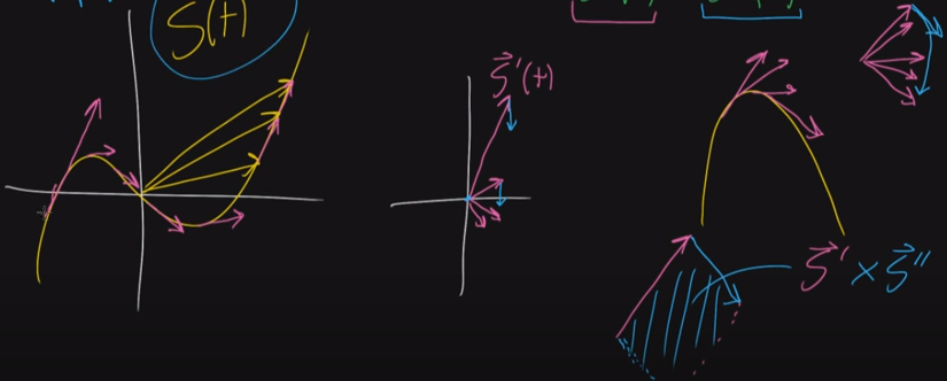 S(t)
S⃗'(t)
S⃗' × S⃗''